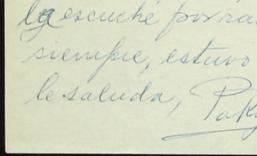 la escuché por ra
siempre, estuvo
le saluda, Pak